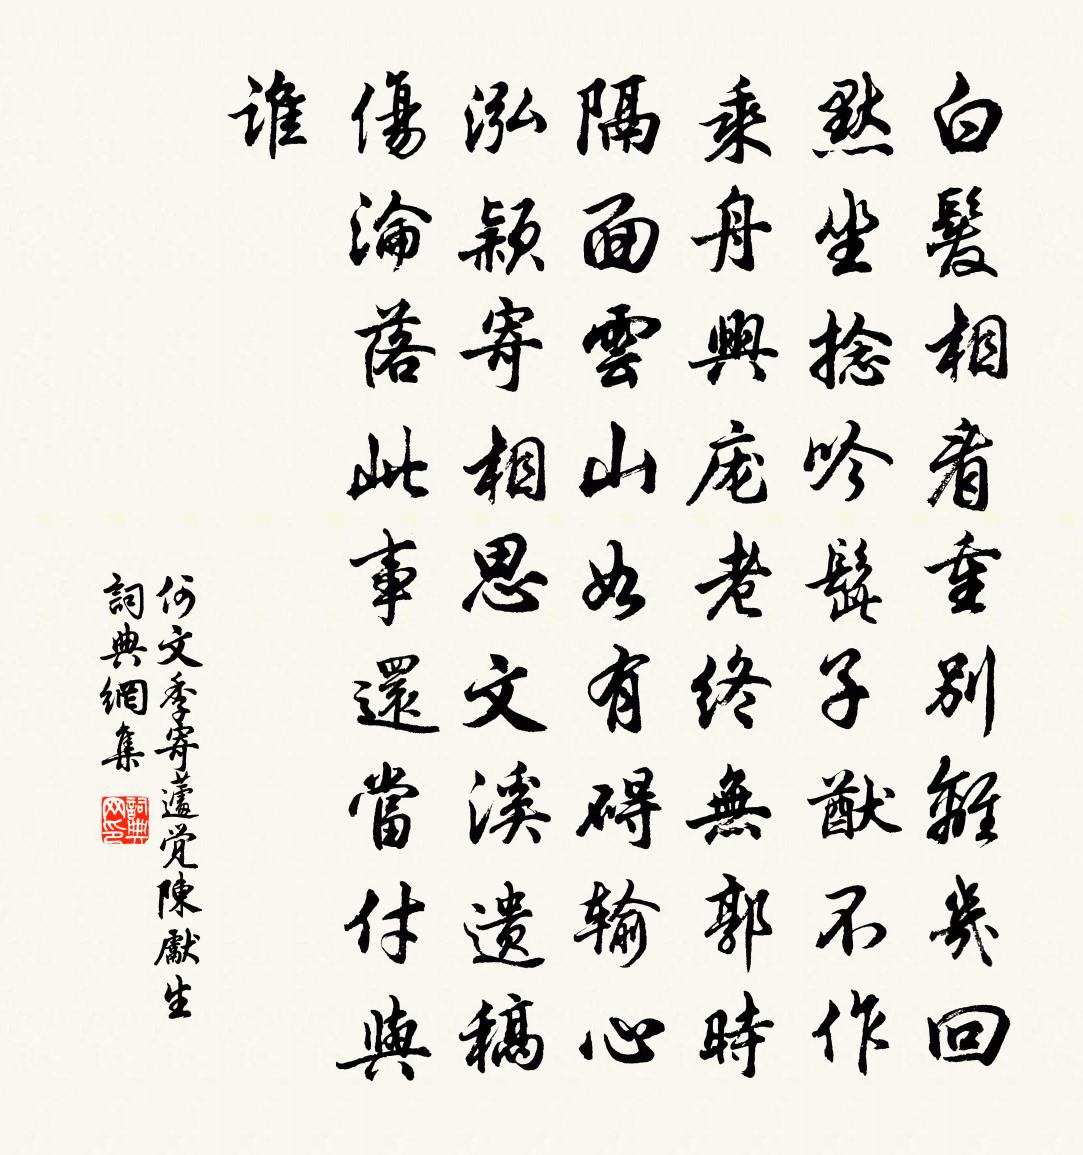 白髮相看重別離幾回
默坐捻吟髭子猷不作
乘舟興庞老終無郭時
隔面雲山如有碍輸心
泓穎寄相思文溪遺稿
傷淪落此事還當付與
誰
何文季寄蘧覚陳獻生
詞典網集
詞典网印